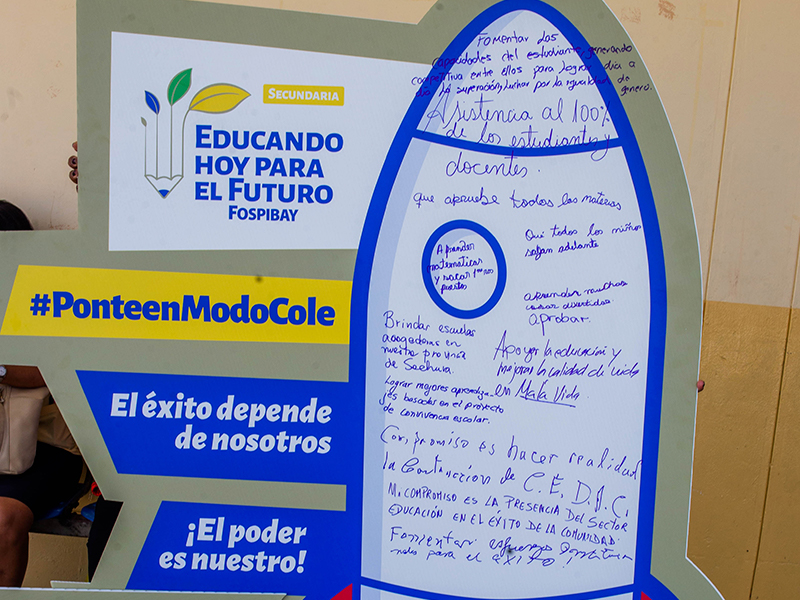 SECUNDARIA
EDUCANDO
HOY PARA
EL FUTURO
FOSPIBAY
#PonteenModoCole
El éxito depende
de nosotros
¡El poder
es nuestro!
Fomentar las
capacidades del estudiante, generando
competitiva entre ellos para lograr día a
día la superación, luchar por la igualdad de género.
Asistencia al 100%
de los estudiantes y
docentes.
que apruebe todos las materias
Qui todos los niños
salgan adelante
Aprender
matematicas
y sacar 1eros
puestos
aprender muchas
cosas divertidas
aprobar.
Brindar escuelas
acogedoras en
nuestra provincia
de Sechura.
Apoyar la educación y
mejorar la calidad de vida
en Mala Vida
Lograr mejores aprendiza-
jes basados en el proyecto
de convivencia escolar.
Compromiso es hacer realidad
la Construcción de C.E.D.I.C.
MI COMPROMISO ES LA PRESENCIA DEL SECTOR
EDUCACIÓN EN EL ÉXITO DE LA COMUNIDAD.
Fomentar esfuerzos
para el exito